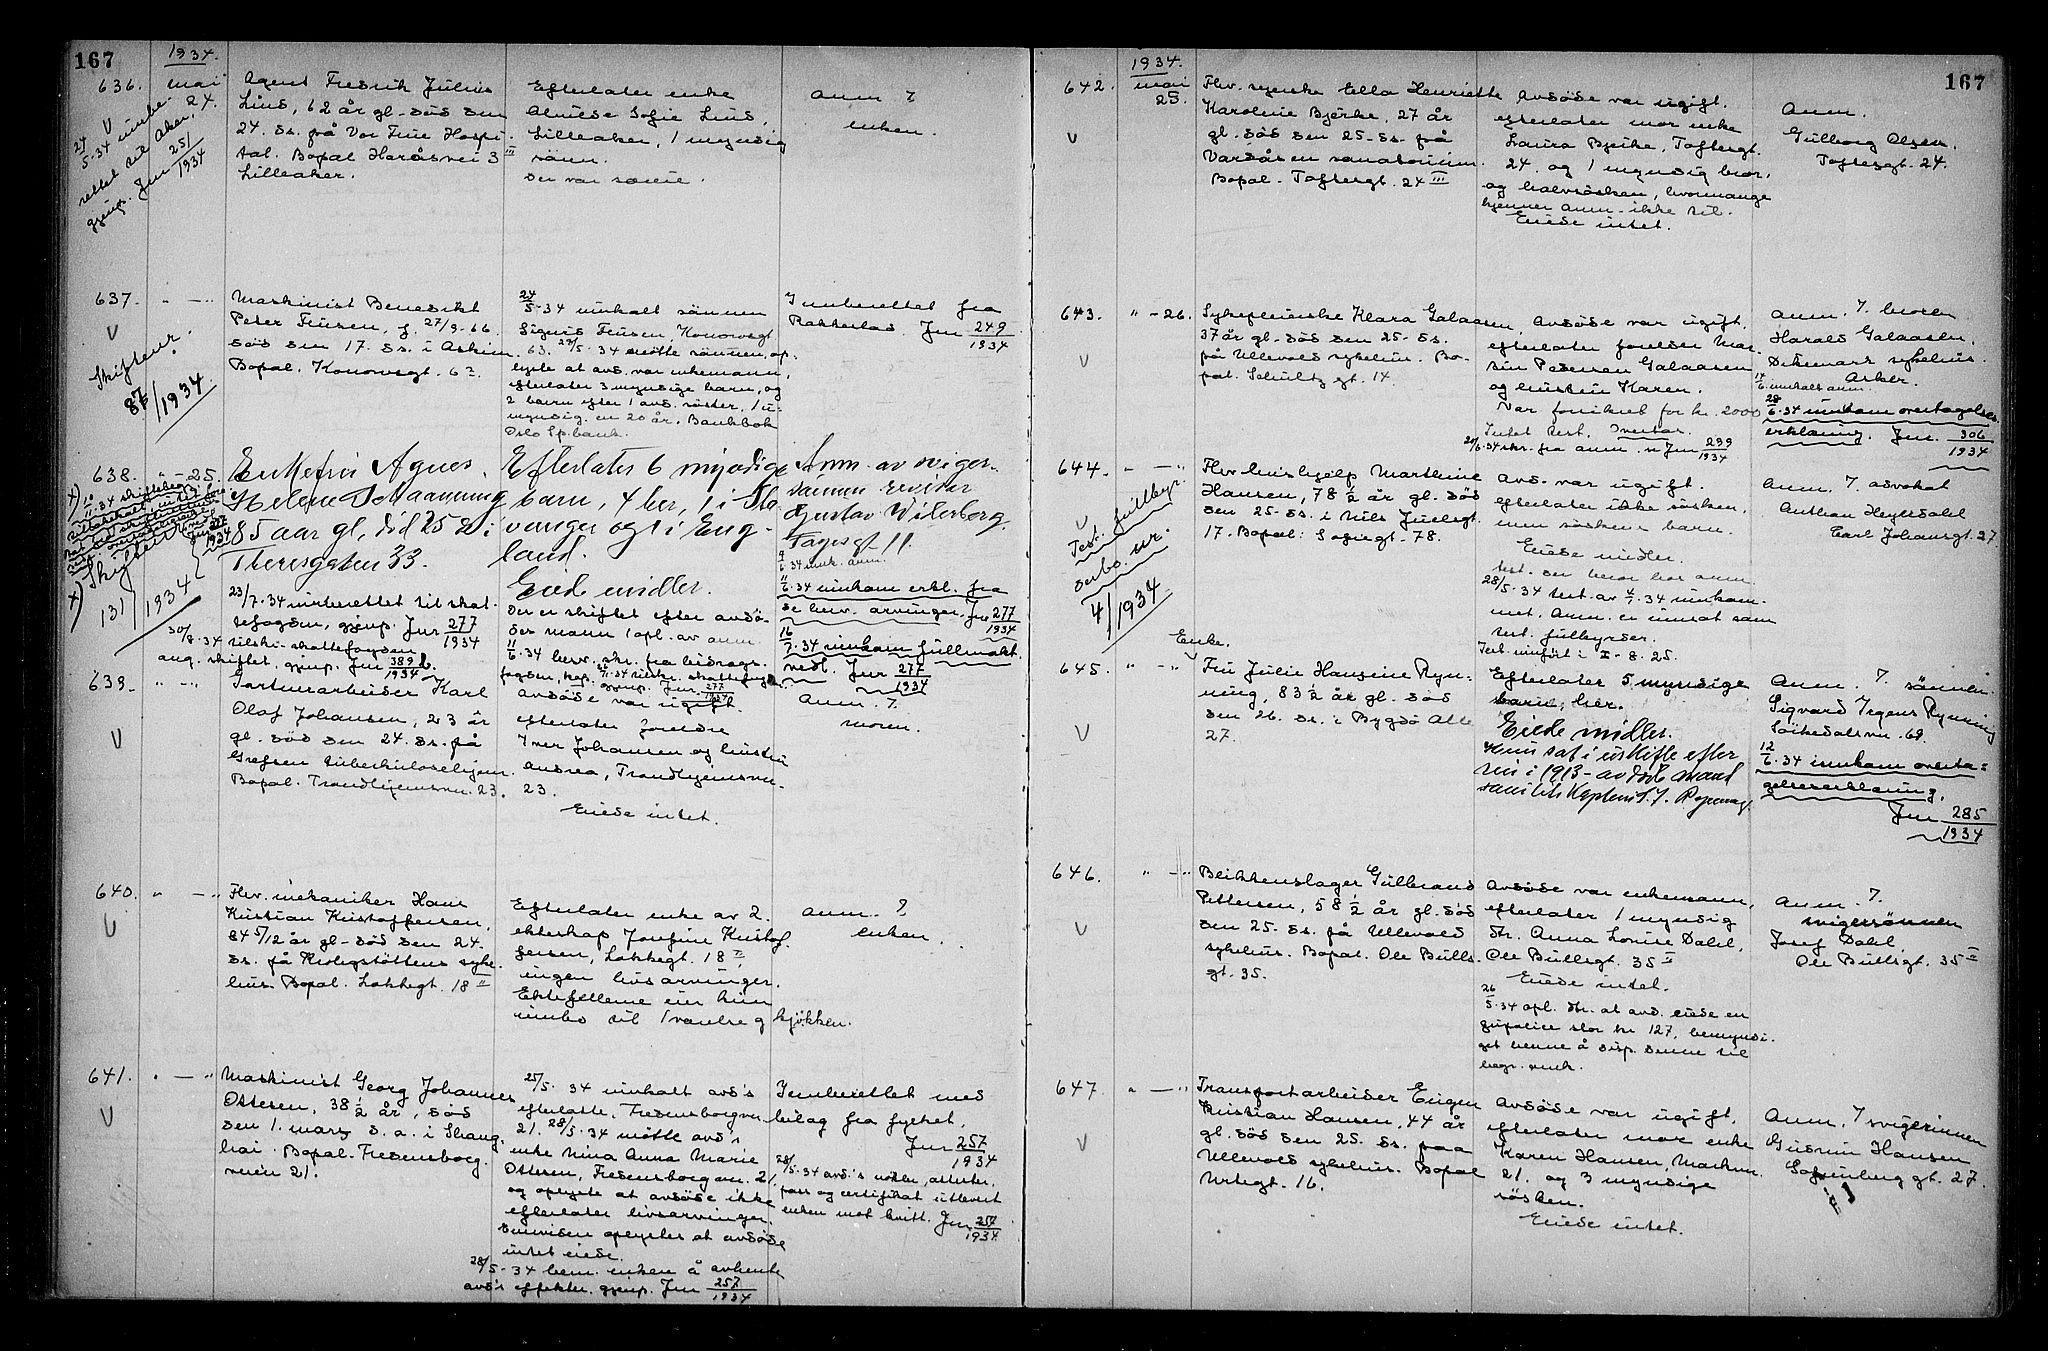 167
1934.
636.
mai
24.
24/5-34 innbe-
rettet til Aker,
gjenp. Jnr 251/1934
Agent Fredrik Julius
Lius, 62 år gl. död den
24. ds. på Vor Frue Hospi-
tal. Bopal Haråsvei 3 III
Lilleaker.
Efterlater enke
Sofie Lius,
Lilleaker, 1 myndig
sönn.
Anm ?
enken.
637.
Skifteur.
87/1934
Maskinist Benedikt
Peter Fusen, f. 27/9-66
död den 17. ds. i Askim.
Bopal. Konowsgt. 63.
24/5-34 innkalt sönnen
Sigurd Fusen, Konowsgt
63. 29/5-34 mötte sönnen, op-
lyste at avd. var enkemann,
efterlater 3 myndige barn, og
2 barn efter 1 avd. datter, 1 u-
myndig en 20 år. Bankbok
Oslo Sp.bank.
Innberettet fra
Rakkestad. Jnr 249/1934
638.
" - 25.
131/1934
Enkefru Agnes
Helene Schaanning
85 aar gl, död 25 ds i
Theresgaten 33.
23/7-34 innberettet til skat-
tefogden, gjenp. Jnr 277/1934
30/8-34 tilskr. skattefogden
ang. skiftet, gjenp. Jnr 389/1934
Efterlater 6 myndige
barn, 4 her, 1 i Sta-
vanger og 1 i Eng-
land.
Eiede midler.
Der er skiftet efter avdö-
des mann, opl. av anm.
11/6-34 henv. skr. fra bidrags-
fogden,
gjenp. Jnr 277/1934
Anm. av sviger-
sönnen revisor
Gustav Wilerberg,
Tagesgt 11.
9/6-34 innk. anm.
11/6-34 innkom erkl. fra
de herv. arvinger. Jnr 277/1934
16/7-34 innkom fullmakt
vedl. Jnr 277/1934
639.
Gartnerarbeider Karl
Olaf Johansen, 23 år
gl. död den 24. ds. på
Grefsen tuberkulosehjem.
Bopal. Trondhjemsvn. 23.
Avdöde var ugift.
efterlater foreldre
Iver Johansen og hustru
Andrea, Trondhjemsvn.
23.
Eiede intet.
Anm. ?
moren.
640.
Fhv. mekaniker Hans
Kristian Kristoffersen,
84 5/12 år gl. död den 24.
ds. på Prolegstöttens syke-
hus. Bopal. Lakkegt. 18 II
Efterlater enke av 2.
ekteskap Josefine Kristof-
fersen, Lakkegt. 18 II,
ingen livsarvinger.
Ektefellene eier kun
innbo til 1 værelse og kjökken.
Anm. ?
enken.
641.
Maskinist Georg Johannes
Ottesen, 38 1/2 år, död
den 1. mars d. a. i Shang-
hai. Bopal. Fredensborg-
veien 21.
25/5-34 innkalt avd's
efterlatte, Fredensborgvn
21. 28/5-34 mötte avd's
enke Nina Anna Marie
Ottesen, Fredensborgvn. 21.
og oplyste at avdöde ikke
efterlater livsarvinger.
Enkvisen oplystes at avdöde
intet eiede.
28/5-34 bem. enken å avhente
avd's effekter, gjenp. Jnr 257/1934
Innberettet med
bilag fra fylket.
Jnr 257/1934
28/5-34 avd.'s nökler, attester,
pass og certifikat utlevert
enken mot kvitt. Jnr 257/1934
167
1934.
642.
mai
25.
Fhv. syerske Ella Henriette
Karoline Bjerke, 27 år
gl. död den 25. ds. på
Vardåsen sanatorium.
Bopal. Toftesgt. 24 III
Avdöde var ugift.
efterlater mor enke
Laura Bjerke, Toftesgt.
24. og 1 myndig bror,
og halvsösken, hvormange
kjenner anm. ikke til.
Eiede intet.
Anm.
Gulborg Olsen,
Toftesgt. 24.
643.
" - 26.
Sykepleierske Klara Galaasen,
37 år gl. död den 25. ds.
på Ullevold sykehus. Bo-
pal. Schultz gt. 14.
Avdöde var ugift,
efterlater foreldre Mar-
tin Pedersen Galaasen
og hustru Karen.
Var forsikret for kr. 2000
Intet test. Overtar.
20/6-34 skr. fra anm. Jnr 299/1934
Anm. ?. broren
Harald Galaasen,
Dikemark sykehus.
Asker.
14/6 innkalt anm.
28/6-34 innkom overtagelses-
erklæring. Jnr. 306/1934
644.
Test. fullbyr.
derbo. nr.
4/1934
Fhv. hushjelp Marthine
Hansen, 78 1/2 år gl. död
den 25. ds. i Nils Juelsgt.
17. Bopal: Sofiegt. 78.
Avd. var ugift.
efterlater ikke sösken,
men söskens barn.
Eiede midler.
test. der beror hos anm.
28/5-34 test. av 4/7-34 innkom-
met. Anm. er innsat som
test. fullbyrder.
Test. innfört i I - 8. 25.
Anm. ?. advokat
Anthon Heyerdahl
Carl Johansgt. 27
645.
Enke.
Fru Julie Hansine Ryn-
ning, 83 1/2 år gl. död
den 26. ds. i Bygdö Alle
27.
Efterlater 5 myndige
barn, her.
Eiede midler.
Hun sat i uskifte efter
sin i 1913 avdöde mand
sanitets Kaptein
Anm. ?. sönnen
Sigvard Irgens Rynning
Sörkedalsvn. 69.
12/6-34 innkom overta-
gelseserklæring.
Jnr 285/1934
646.
Blikkenslager Gulbrand
Pettersen, 58 1/2 år gl. död
den 25. ds. på Ullevold
sykehus. Bopal. Ole Bulls
gt. 35.
Avdöde var enkemann,
efterlater 1 myndig
dtr. Anna Louise Dahl,
Ole Bullsgt. 35 II
Eiede intet.
26/5-34 opl. dtr. at avd. eiede en
gravplass stor kr 127, bemyndi-
get henne å disp. denne til
begr. omk.
Anm. ?.
svigersönnen
Josef Dahl.
Ole Bullsgt. 35 II
647.
Transportarbeider Eugen
Kristian Hansen, 44 år
gl. död den 25. ds. paa
Ullevold sykehus. Bopal
Urtegt. 16.
Avdöde var ugift,
efterlater mor enke
Karen Hansen, Markvn.
21. og 3 myndige
sösken.
Eiede intet.
Anm. ? svigerinnen
Gudrun Hansen
Sofienberg gt. 27.